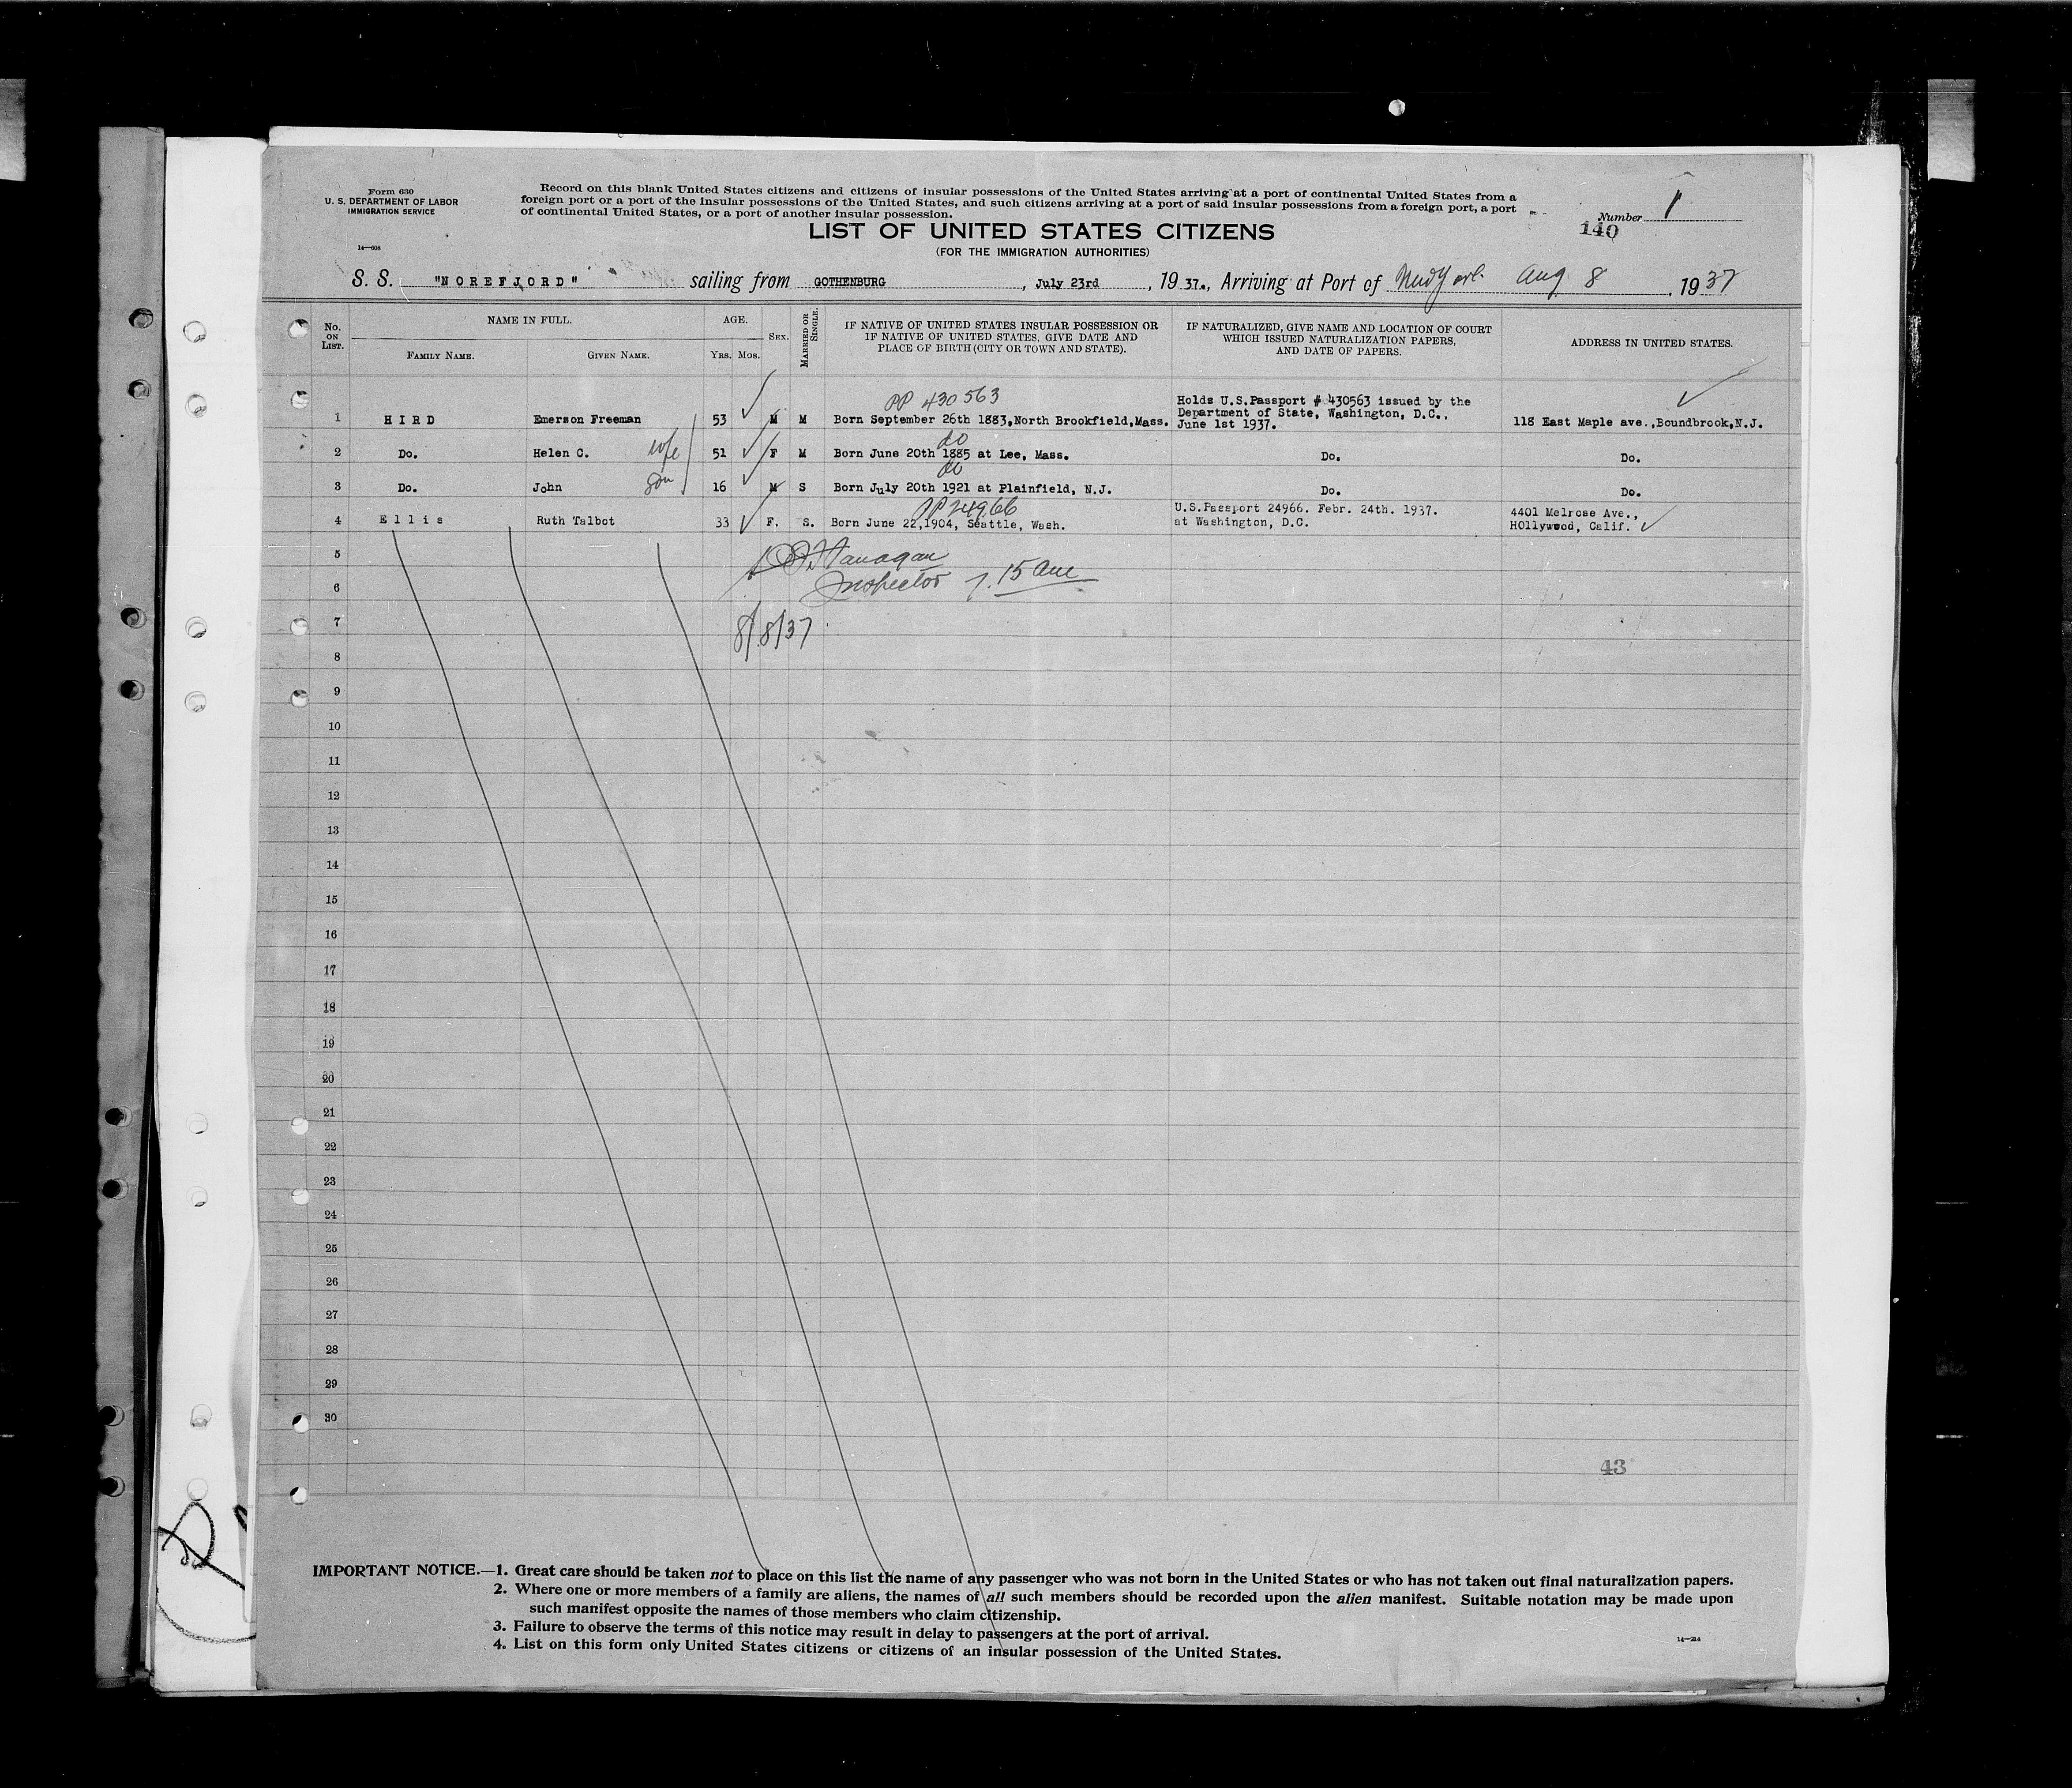 Form 630
U. S. DEPARTMENT OF LABOR
IMMIGRATION SERVICE
14—608
Record on this blank United States citizens and citizens of insular possessions of the United States arriving at a port of continental United States from a
foreign port or a port of the insular possessions of the United States, and such citizens arriving at a port of said insular possessions from a foreign port, a port
of continental United States, or a port of another insular possession.
Number 1
140
LIST OF UNITED STATES CITIZENS
(FOR THE IMMIGRATION AUTHORITIES)
S. S. "NOREFJORD" sailing from GOTHENBURG, July 23rd, 1937., Arriving at Port of New York Aug 8, 1937
No. ON LIST.
NAME IN FULL.
FAMILY NAME. GIVEN NAME.
AGE.
YRS. MOS.
SEX.
MARRIED OR SINGLE.
IF NATIVE OF UNITED STATES INSULAR POSSESSION OR
IF NATIVE OF UNITED STATES, GIVE DATE AND
PLACE OF BIRTH (CITY OR TOWN AND STATE).
IF NATURALIZED, GIVE NAME AND LOCATION OF COURT
WHICH ISSUED NATURALIZATION PAPERS,
AND DATE OF PAPERS.
ADDRESS IN UNITED STATES.
PP 430563
Holds U.S.Passport # 430563 issued by the
Department of State, Washington, D.C.,
June 1st 1937.
1 HIRD Emerson Freeman 53 M M Born September 26th 1883,North Brookfield,Mass. 118 East Maple ave.,Boundbrook,N.J.
do
2 Do. Helen C. wife 51 F M Born June 20th 1885 at Lee, Mass. Do. Do.
do
3 Do. John son 16 M S Born July 20th 1921 at Plainfield, N.J. Do. Do.
PP 24966
U.S.Passport 24966. Febr. 24th. 1937.
at Washington, D.C.
4 Ellis Ruth Talbot 33 F. S. Born June 22,1904, Seattle, Wash. 4401 Melrose Ave.,
HOllywood, Calif.
5
Inspector 7.15 am
6
7
8/8/37
8
9
10
11
12
13
14
15
16
17
18
19
20
21
22
23
24
25
26
27
28
29
30
43
IMPORTANT NOTICE.—1. Great care should be taken not to place on this list the name of any passenger who was not born in the United States or who has not taken out final naturalization papers.
2. Where one or more members of a family are aliens, the names of all such members should be recorded upon the alien manifest. Suitable notation may be made upon
such manifest opposite the names of those members who claim citizenship.
3. Failure to observe the terms of this notice may result in delay to passengers at the port of arrival.
4. List on this form only United States citizens or citizens of an insular possession of the United States.
14—214